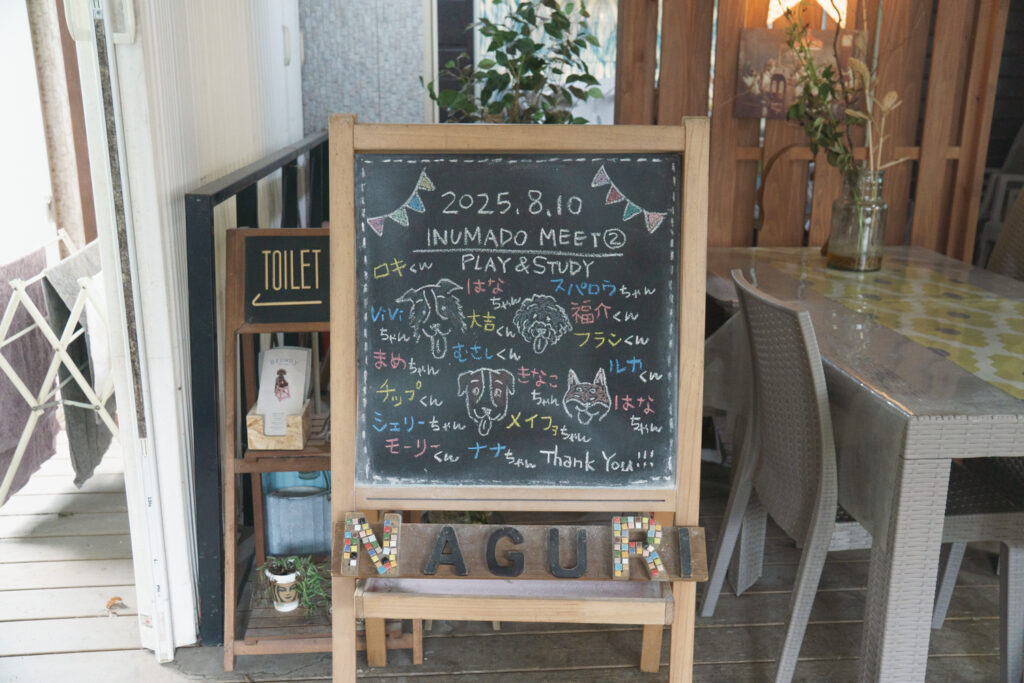 2025.8.10
INUMADO MEET②
PLAY & STUDY
ロキくん
はなちゃん
スパロウちゃん
ViViちゃん
大吉くん
福介くん
フランくん
まめちゃん
むさしくん
きなこちゃん
ルカくん
チップくん
はなちゃん
シェリーちゃん
メイフォちゃん
モーリーくん
ナナちゃん
Thank You!!!
NAGURI
TOILET